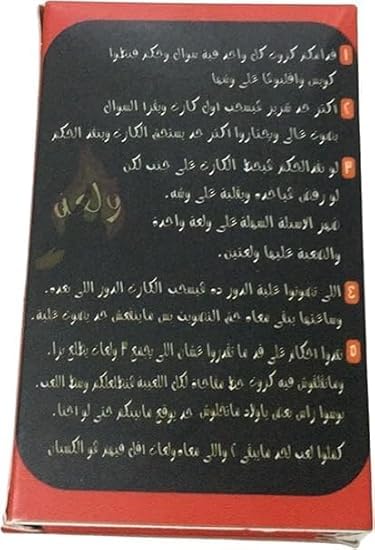 ١ قدامكم كروت كل واحد فيه سؤال وحكم فنطوا
كويس واقلبوها على وشها
٢ اكتر حد شرير هيسحب اول كارت ويقرا السوال
بصوت عالي ويختاروا اكتر حد يستحق الكارت وينفذ الحكم
٣ لو نفذ الحكم هيحط الكارت على جنب لكن
لو رفض هياخده ويقلبه على وشه.
الاسئلة السهلة على ولعة واحدة
والصعبة عليها ولعتين.
ولعة
٤ اللي تصوتوا عليه الدور ده هيسحب الكارت الدور اللي بعده.
وساعتها يبقى معاه حق التصويت بس ماينفعش حد يصوت عليه.
٥ نفذوا احكام على قد ما تقدروا عشان اللي يجمع ٣ ولعات يطلع برا.
وماتقلقوش فيه كروت حظ مفاجاة لكل اللعيبة هتطلعلكم وسط اللعب.
بوسوا راس بعض ياولاد ماتخلوش حد يوقع مابينكم حتى لو احنا.
كملوا لعب لحد مايبقى ٢ واللي معاه ولعات اقل فيهم هو الكسبان